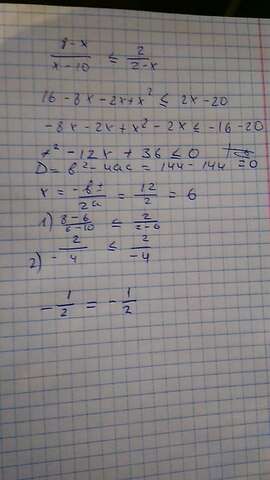 (8-x)/(x-10) ≤ 2/(2-x)
16 - 8x - 2x + x² ≤ 2x - 20
-8x - 2x + x² - 2x ≤ -16 - 20
x² - 12x + 36 ≤ 0
D = b² - 4ac = 144 - 144 = 0
x = (-b ±)/(2a) = 12/2 = 6
1) (8-6)/(6-10) ≤ 2/(2-6)
2) -2/4 ≤ 2/(-4)
-1/2 = -1/2